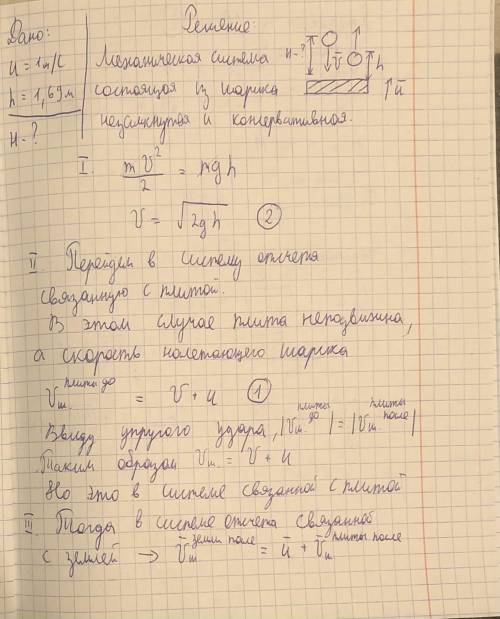 Дано:
Решение:
u = 1 м/с
h = 1,69 м
H - ?
Механическая система
состоящая из шарика
незамкнутая и консервативная.
H - ?
v̄
h
ū
I. mv²/2 = mgh
v = √2gh (2)
II Перейдем в систему отсчета
связанную с плитой.
В этом случае плита неподвижна,
а скорость налетающего шарика
v ш. плиты до = v + u (1)
Ввиду упругого удара, |v ш плиты до| = |v ш плиты после|
Таким образом v ш. = v + u
Но это в системе связанной с плитой
III Тогда в системе отсчета связанной
с землей → v̄ ш земли после = ū + v̄ ш плиты после